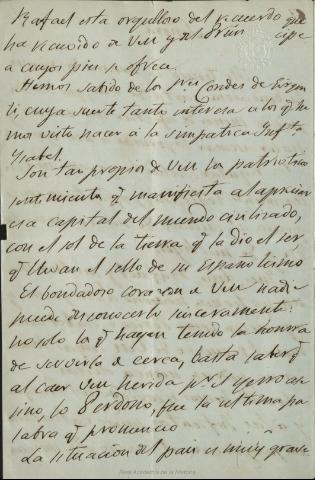 Rafael esta orgulloso del recuerdo que
ha reunido de VM y del Prín cipe
a cuyos pies se ofrece.
Hemos sabido de los Sres Condes de Girgen
ti, cuya suerte tanto interesa a los q. he
mos visto nacer á la simpatica Infta
Ysabel.
Son tan propios de VM los patrioticos
sentimientos q. manifiesta al apreciar
esa capital del mundo civilizado,
con el sol de la tierra q. la dio el ser,
q. llevan el sello de su Españolismo
El bondadoso corazon de VM nadie
puede desconocerlo sinceramente:
no solo lo q. hayan tenido la honra
de servirla de cerca, basta saber q.
al caer VM herida p.r el yerro ase
sino, lo Perdono, fue la ultima pa
labra q. pronuncio
La situacion del pais es muy grave
Real Academia de la Historia